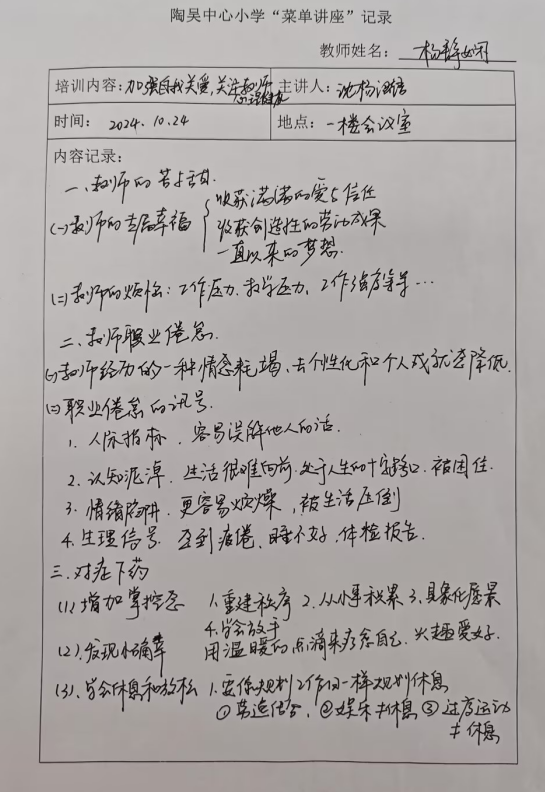 陶吴中心小学“菜单讲座”记录
教师姓名：杨静娴
培训内容：加强自我关爱，关注教师心理健康
主讲人：沈杨
时间：2024.10.24
地点：一楼会议室
内容记录：
一、教师的苦与甜.
(一)教师的幸福
收获满满的爱与信任
收获创造性的劳动成果
一直以来的梦想.
(二)教师的烦恼：工作压力、教学压力、工作强度等等…
二、教师职业倦怠.
(一)教师经历的一种情感耗竭、去个性化和个人成就感降低.
(二)职业倦怠的讯号.
1. 人际指标、容易误解他人的话.
2. 认知泥淖、生活很难向前.处于人生的十字路口.被困住.
3. 情绪陷阱、更容易烦燥，被生活压倒
4. 生理信号 感到疲倦、睡不好.体检报告.
三、对症下药
(1).增加掌控感 1.重建秩序 2.从小事积累 3.具象化愿景
4.学会放手
(2).发现小确幸 用温暖的点滴来疗愈自己.兴趣爱好.
(3).学会休息和放松 1.要像规划工作一样规划休息
①劳逸结合、②娱乐≠休息 ③过度运动≠休息